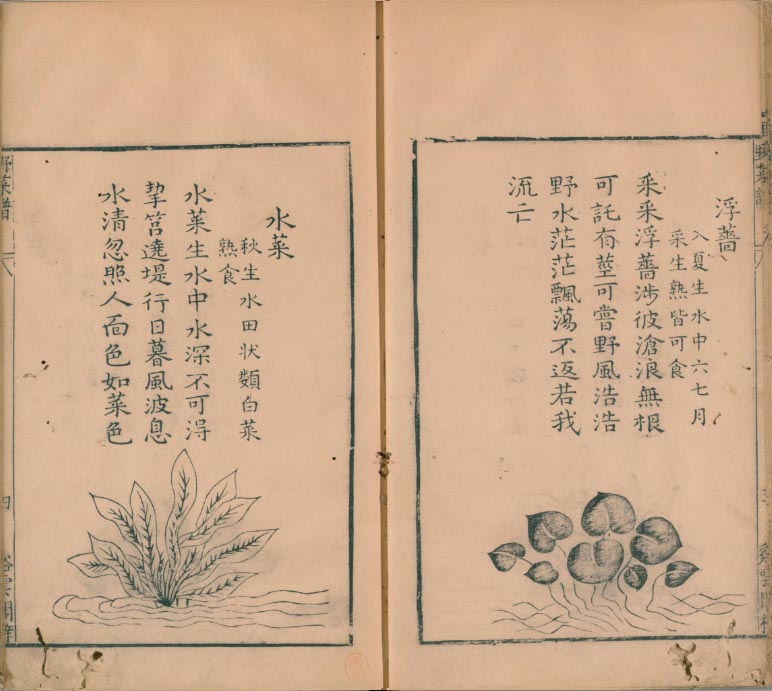 浮薔
入夏生水中六七月
采生熟皆可食
采采浮薔涉彼滄浪無根
可託有莖可嘗野風浩浩
野水茫茫飄蕩不返若我
流亡
水菜
秋生水田狀類白菜
熟食
水菜生水中水深不可得
挈筥遶堤行日暮風波息
水清忽照人面色如菜色
野菜譜
四